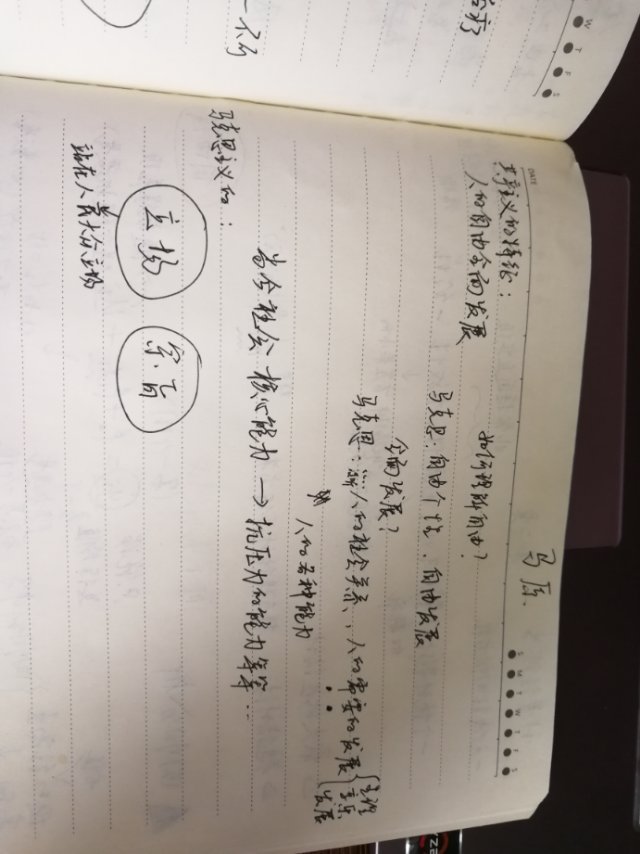 DATE
马原
S M T W T F S
共产主义的特征：
人的自由全面发展
如何理解自由？
马克思：自由个性、自由发展
全面发展？
马克思：人的社会关系、人的需要的发展 { 生理 享乐 发展
人的各种能力
当今社会 核心能力 → 抗压力的能力等等…
马克思主义的：
立场 宗旨
站在人 大众立场
W T F S
治疗
一不